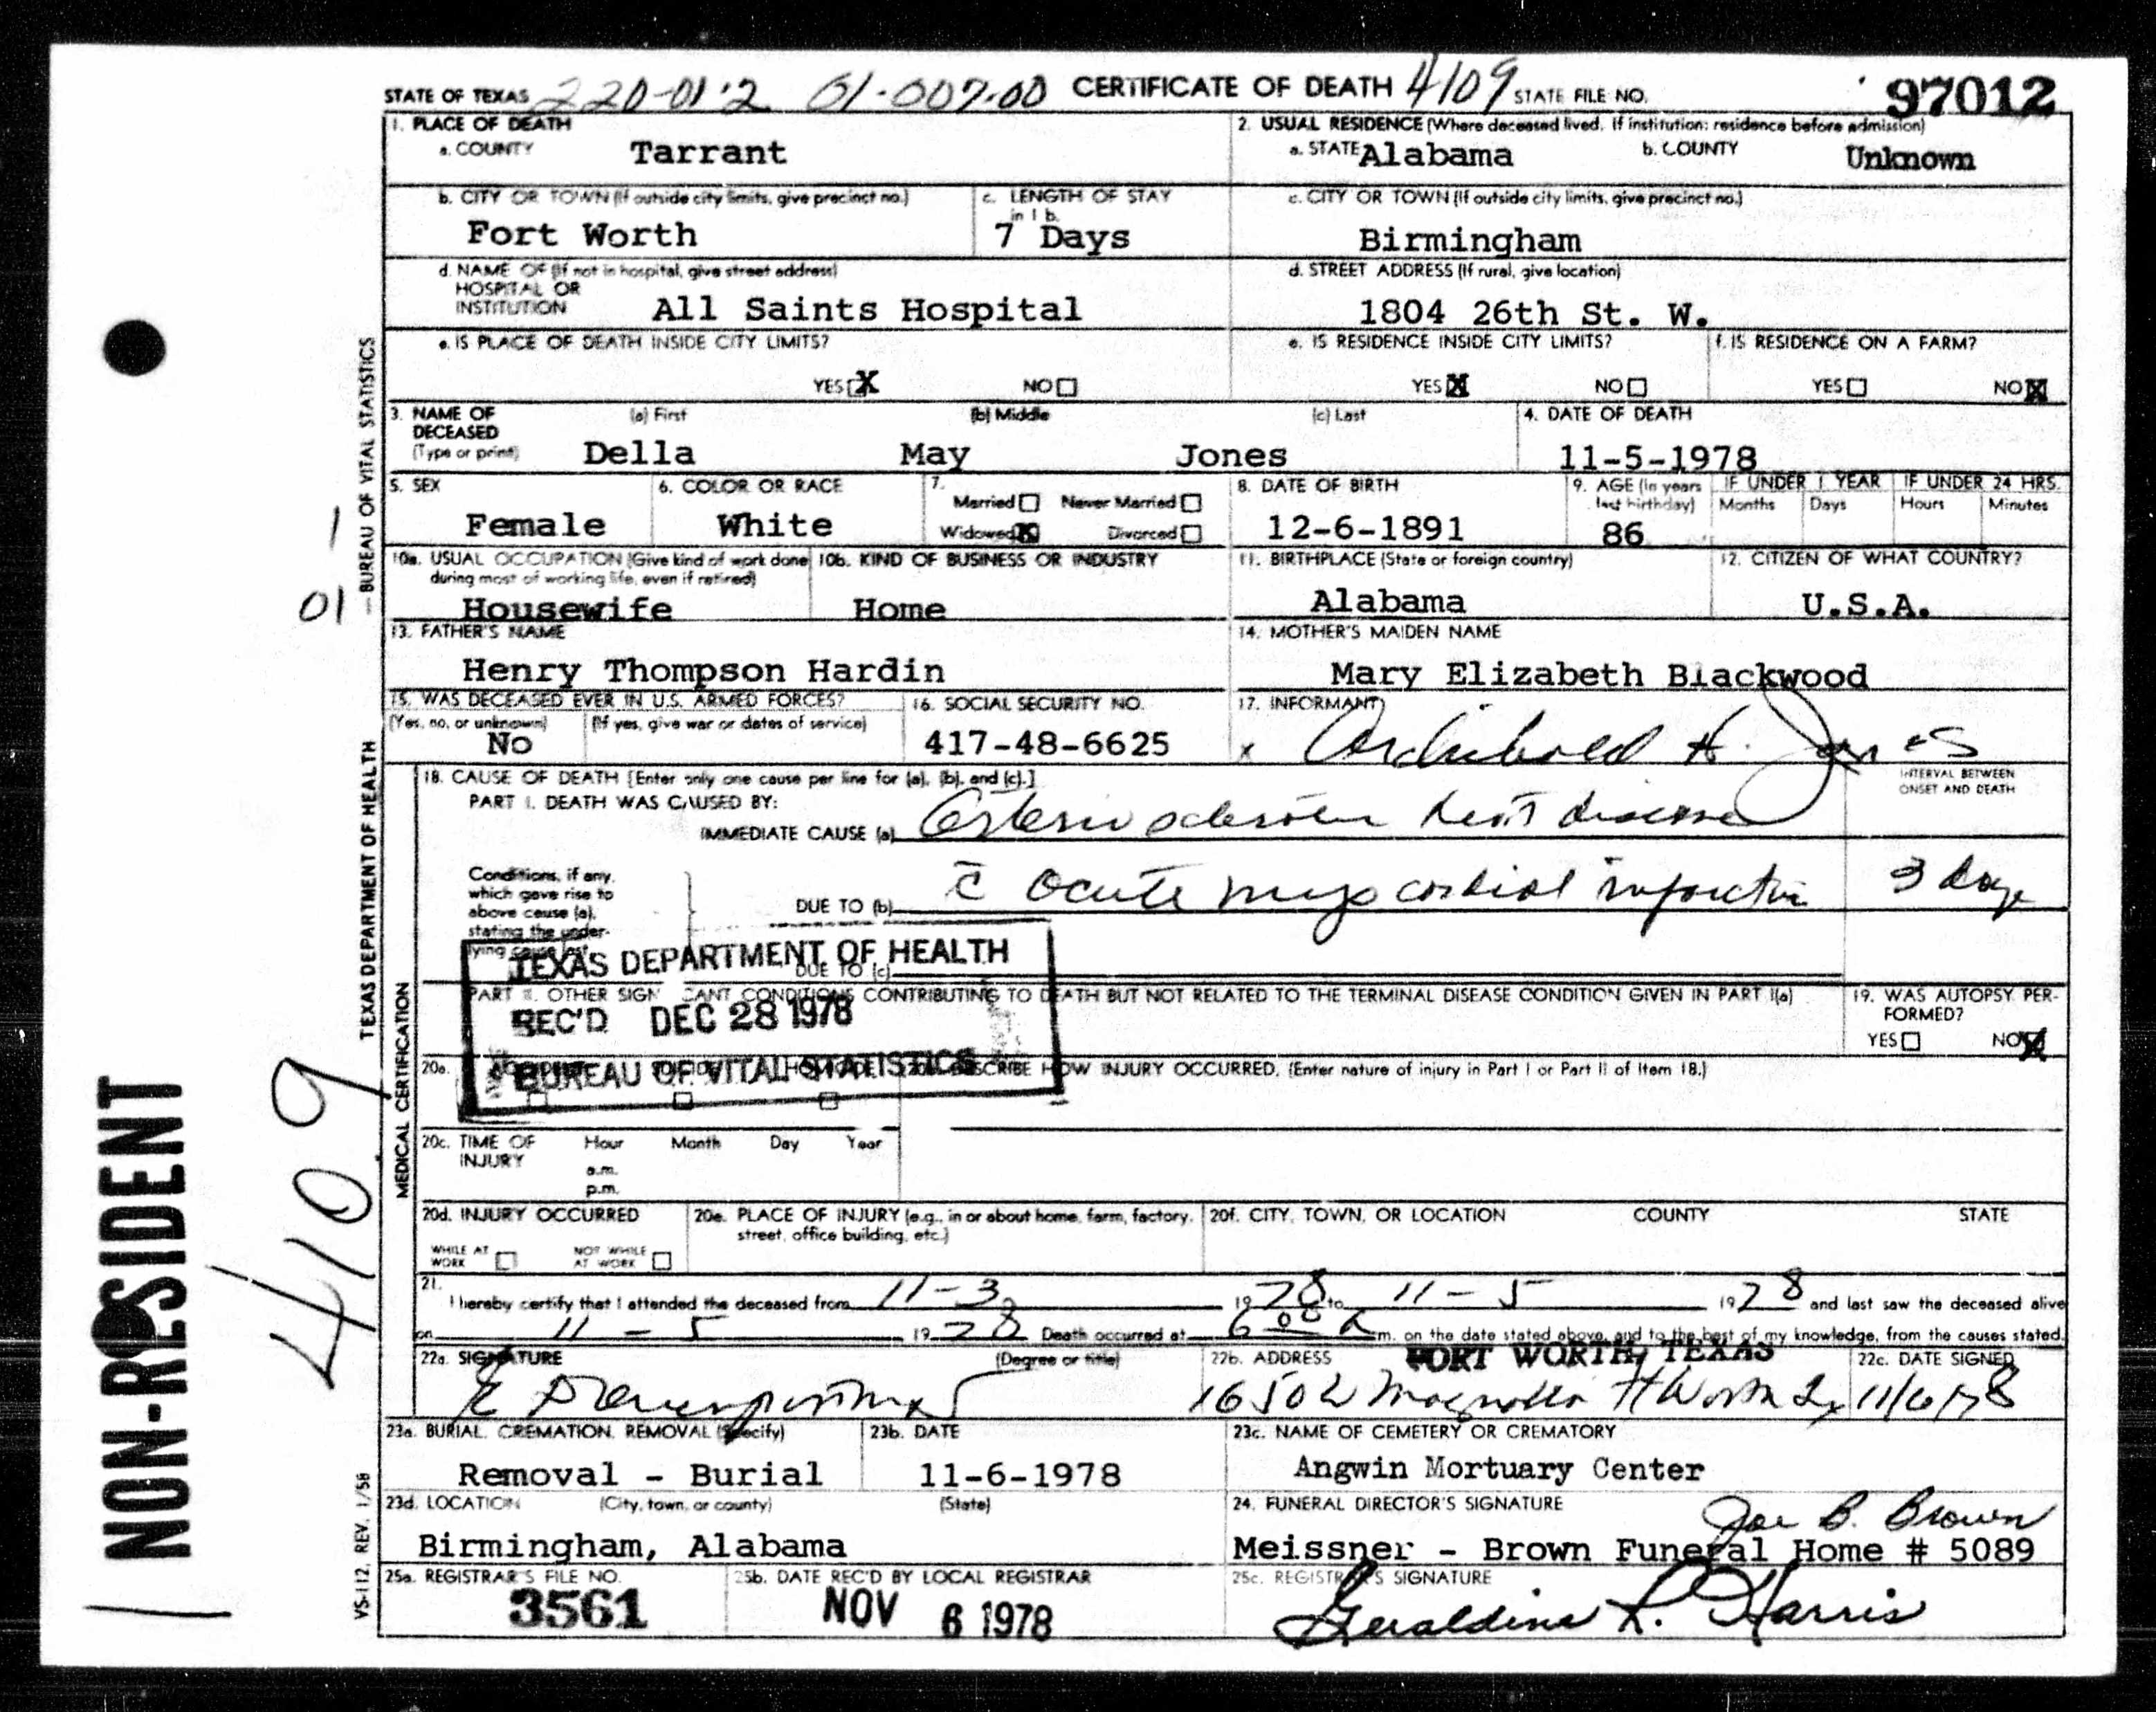 STATE OF TEXAS 220-01-2 01-007-00 CERTIFICATE OF DEATH 4109 STATE FILE NO. 97012
1. PLACE OF DEATH
a. COUNTY Tarrant
2. USUAL RESIDENCE (Where deceased lived. If institution: residence before admission)
a. STATE Alabama b. COUNTY Unknown
b. CITY OR TOWN (If outside city limits, give precinct no.)
Fort Worth
c. LENGTH OF STAY
in 1 b.
7 Days
c. CITY OR TOWN (If outside city limits, give precinct no.)
Birmingham
d. NAME OF (If not in hospital, give street address)
HOSPITAL OR
INSTITUTION All Saints Hospital
d. STREET ADDRESS (If rural, give location)
1804 26th St. W.
e. IS PLACE OF DEATH INSIDE CITY LIMITS?
YES X NO
e. IS RESIDENCE INSIDE CITY LIMITS?
YES X NO
f. IS RESIDENCE ON A FARM?
YES NO X
3. NAME OF DECEASED
(Type or print)
(a) First (b) Middle (c) Last
Della May Jones
4. DATE OF DEATH
11-5-1978
5. SEX
Female
6. COLOR OR RACE
White
7.
Married Never Married
Widowed X Divorced
8. DATE OF BIRTH
12-6-1891
9. AGE (In years
last birthday)
86
IF UNDER 1 YEAR
Months Days
IF UNDER 24 HRS.
Hours Minutes
10a. USUAL OCCUPATION (Give kind of work done
during most of working life, even if retired)
Housewife
10b. KIND OF BUSINESS OR INDUSTRY
Home
11. BIRTHPLACE (State or foreign country)
Alabama
12. CITIZEN OF WHAT COUNTRY?
U.S.A.
13. FATHER'S NAME
Henry Thompson Hardin
14. MOTHER'S MAIDEN NAME
Mary Elizabeth Blackwood
15. WAS DECEASED EVER IN U.S. ARMED FORCES?
(Yes, no, or unknown) (If yes, give war or dates of service)
No
16. SOCIAL SECURITY NO.
417-48-6625
17. INFORMANT
x Archibald H. Jones
18. CAUSE OF DEATH [Enter only one cause per line for (a), (b), and (c).]
PART I. DEATH WAS CAUSED BY:
IMMEDIATE CAUSE (a) Arteriosclerotic heart disease
INTERVAL BETWEEN
ONSET AND DEATH
Conditions, if any,
which gave rise to
above cause (a),
stating the under-
lying cause last.
DUE TO (b) c̄ acute myocardial infarction 3 days
DUE TO (c)
PART II. OTHER SIGNIFICANT CONDITIONS CONTRIBUTING TO DEATH BUT NOT RELATED TO THE TERMINAL DISEASE CONDITION GIVEN IN PART I(a)
19. WAS AUTOPSY PER-
FORMED?
YES NO X
TEXAS DEPARTMENT OF HEALTH
REC'D DEC 28 1978
BUREAU OF VITAL STATISTICS
20a.
20b. DESCRIBE HOW INJURY OCCURRED. (Enter nature of injury in Part I or Part II of Item 18.)
20c. TIME OF INJURY
Hour Month Day Year
a.m.
p.m.
20d. INJURY OCCURRED
WHILE AT WORK NOT WHILE AT WORK
20e. PLACE OF INJURY (e.g., in or about home, farm, factory,
street, office building, etc.)
20f. CITY, TOWN, OR LOCATION COUNTY STATE
21.
I hereby certify that I attended the deceased from 11-3 1978 to 11-5 1978 and last saw the deceased alive
on 11-5 1978 Death occurred at 6 00 A m. on the date stated above, and to the best of my knowledge, from the causes stated.
22a. SIGNATURE (Degree or title)
22b. ADDRESS FORT WORTH, TEXAS
1650 W Magnolia Ft Worth Tx
22c. DATE SIGNED
11/6/78
23a. BURIAL, CREMATION, REMOVAL (Specify)
Removal - Burial
23b. DATE
11-6-1978
23c. NAME OF CEMETERY OR CREMATORY
Angwin Mortuary Center
23d. LOCATION (City, town, or county) (State)
Birmingham, Alabama
24. FUNERAL DIRECTOR'S SIGNATURE
Joe B. Brown
Meissner - Brown Funeral Home # 5089
25a. REGISTRAR'S FILE NO.
3561
25b. DATE REC'D BY LOCAL REGISTRAR
NOV 6 1978
25c. REGISTRAR'S SIGNATURE
Geraldine R. Harris
MEDICAL CERTIFICATION
VS-112 REV. 1/58
TEXAS DEPARTMENT OF HEALTH — BUREAU OF VITAL STATISTICS
1
01
4109
NON-RESIDENT